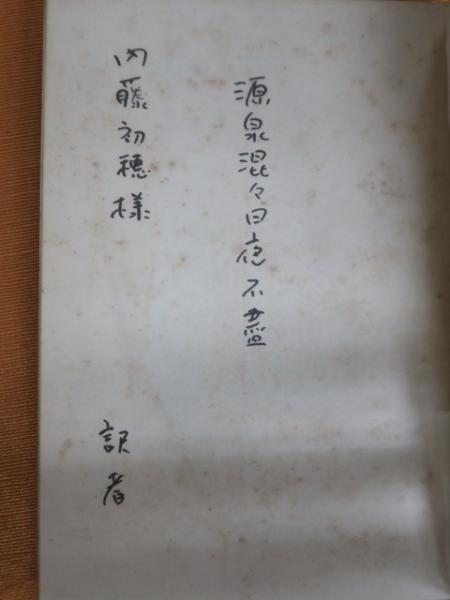 源泉混々日夜不盡
内藤初穂様
訳者